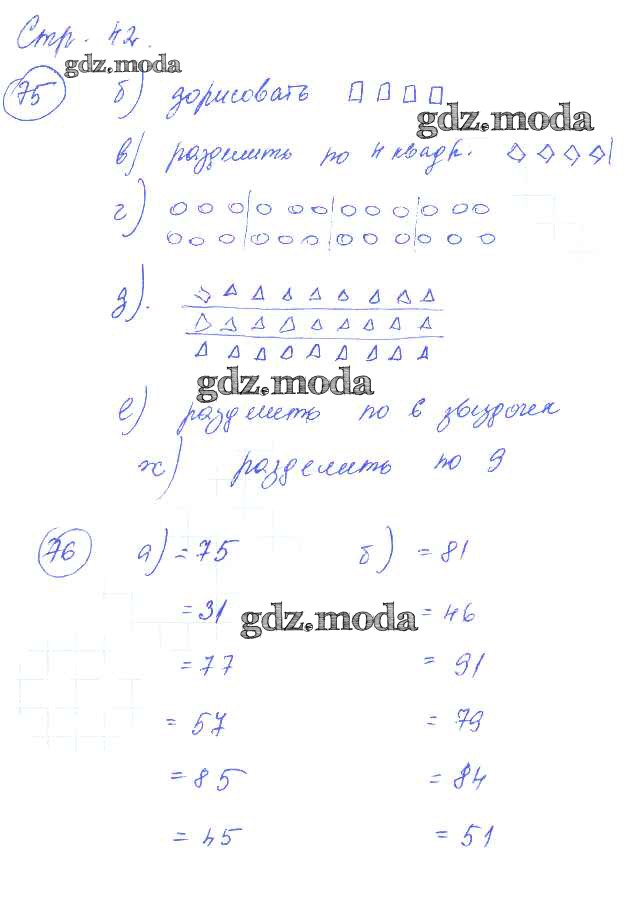 Стр. 42.
gdz.moda
75 б) дорисовать
gdz.moda
в) разделить по 4 квадр.
г)
д).
gdz.moda
е) разделить по 6 звездочек
ж) разделить по 9
76 а) = 75 б) = 81
= 31 gdz.moda = 46
= 77 = 91
= 57 = 79
= 85 = 84
= 45 = 51